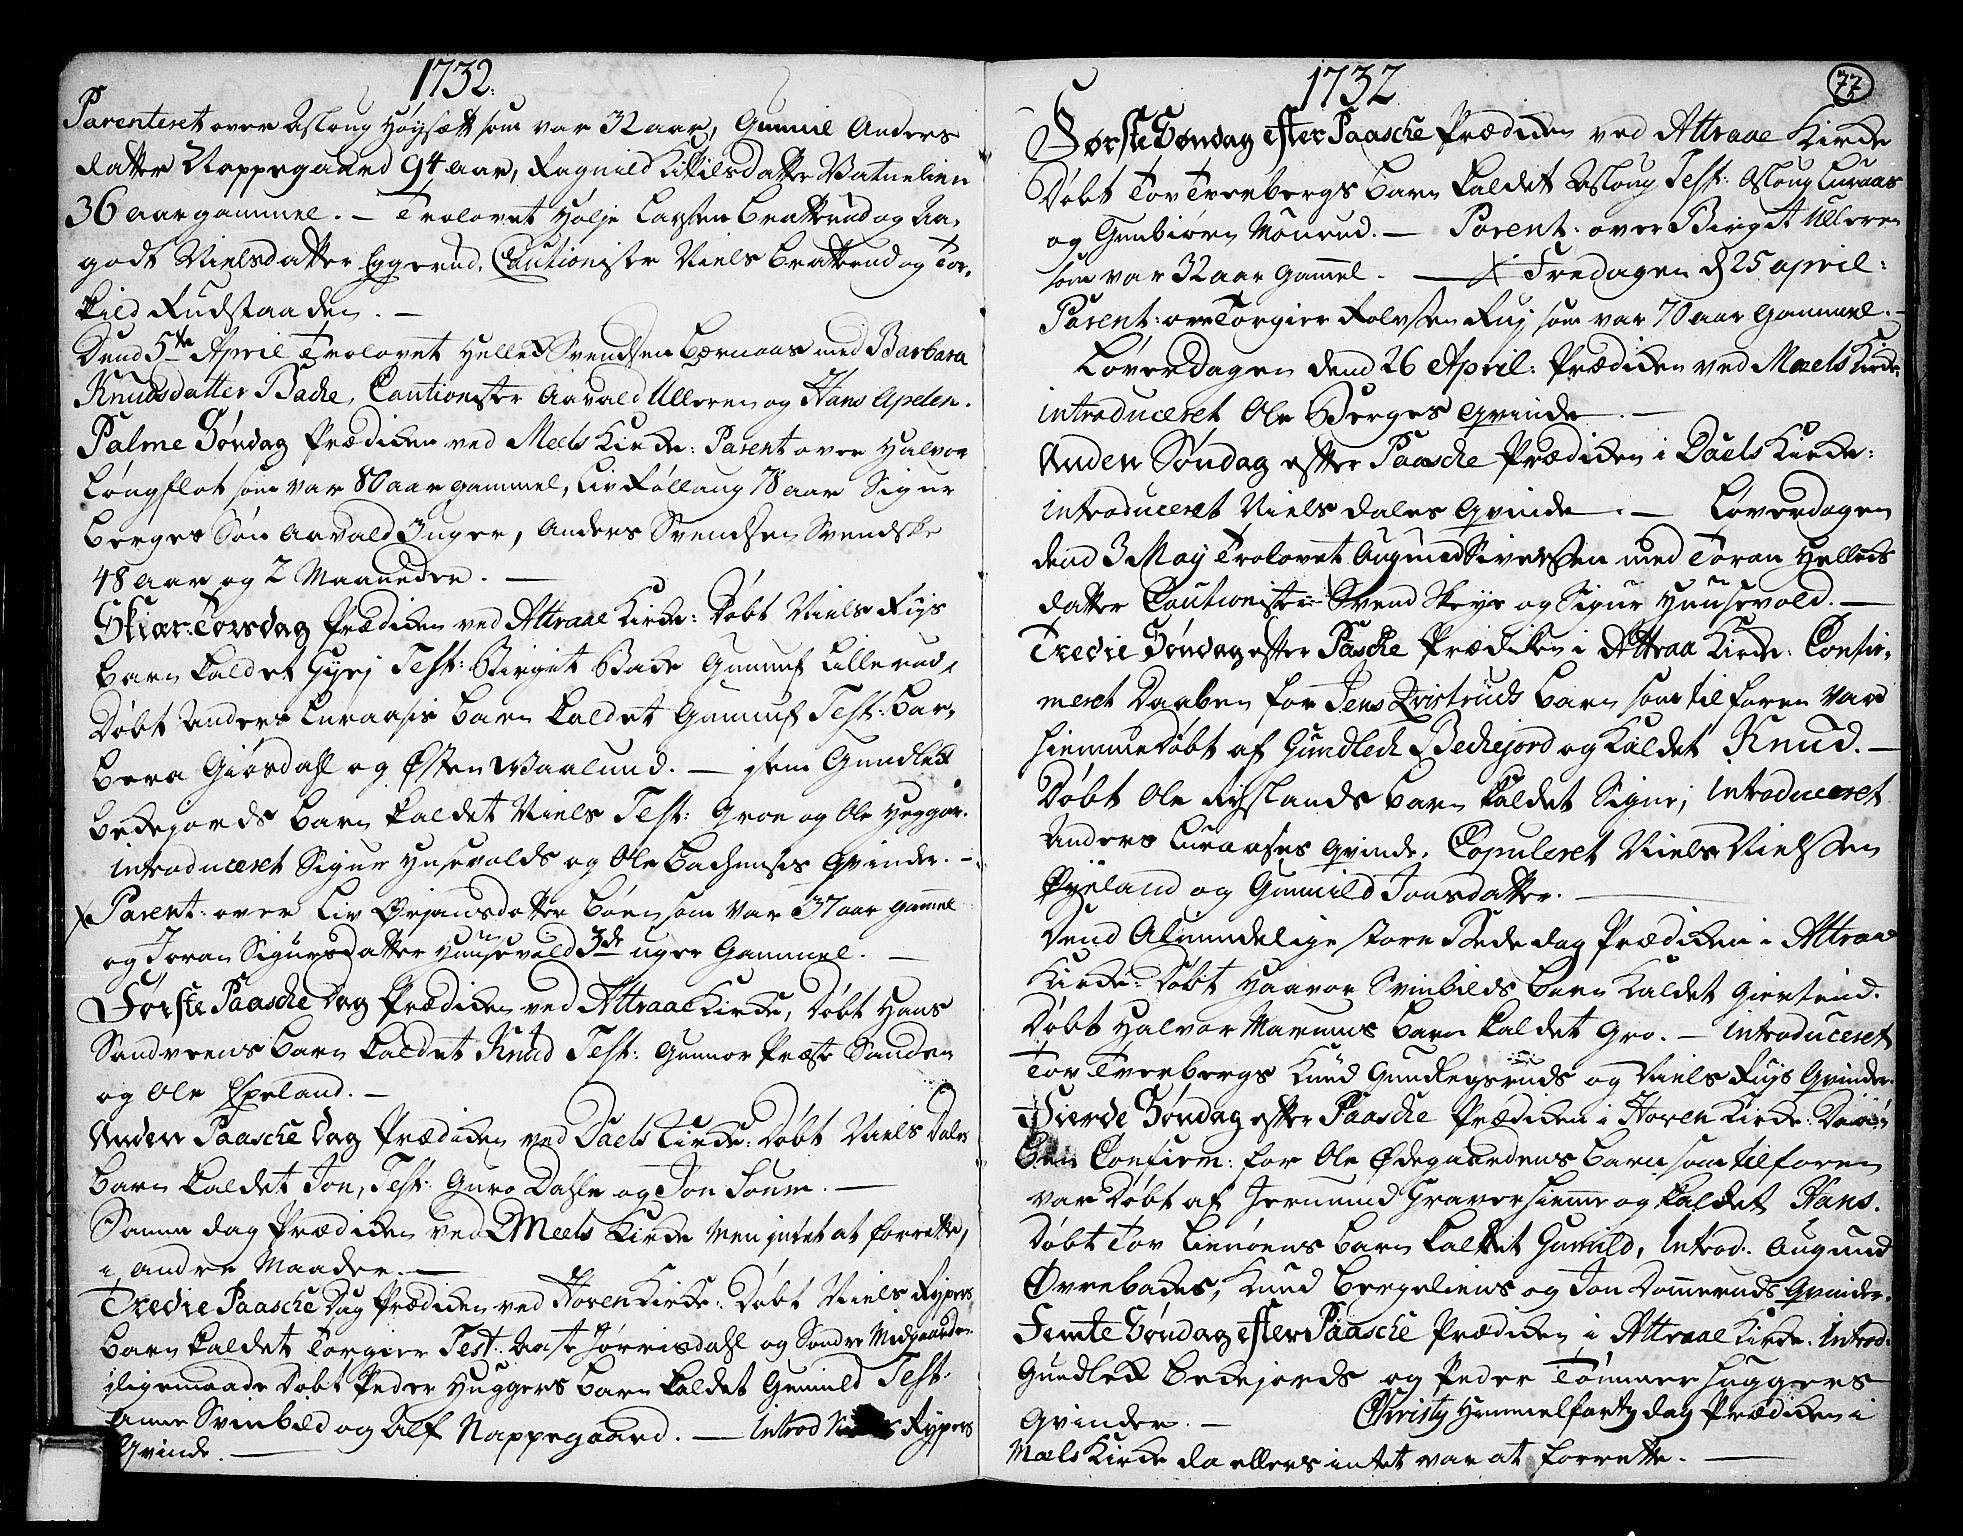 1732.
Parenteret over Asloug Høysætt som var 32 aar, Gunnil Anders
datter Nappegaard 94 aar, Ragnild Kittilsdatter Vatnelien
36 aar gammel. - Trolovet Hølje Larsen Bratterud og Aa,
godt Nielsdatter Eggerud, Cautionister Niels Bratterud og Tor,
kild Rudstaaden. -
Dend 5te April Trolovet Hellek Svendsen Bernaas med Barbara
Knudsdatter Bache, Cautionister Aavald Ulleren og Hans Apelen.
Palme Søndag Prædiken ved Meels Kircke: Parent over Halvor
Longflot som var 80 aar gammel, Liv Følloug 78 aar Sigur
Berges Søn Aavald 3 uger, Anders Svendsen Svendske
48 aar og 2 Maaneder. -
Skiær-Torsdag Prædiken ved Attraae Kircke: Døbt Niels Rujs
barn kaldet Gyrj Test: Birget Bake Gunnuf Lillerud,
Døbt Anders Luraasis barn kaldet Gunnuf Test: Bar,
bera Giøsdahl og Østen Waalund. - jtem Gundlek
bekejords barn kaldet Niels Test: Groe og Ole Heggar.
introduceret Sigur Husevolds og Ole Bachensis Qvinder. -
Parent: over Liv Ørjansdatter Bøen som var 37 aar gamel
og Joran Sigursdatter Huusevold 3de uger Gammel. -
Første Paasche Dag Prædiken ved Attraae Kircke, Døbt Hans
Sandveens barn kaldet Knud Test: Gunnor Præste Sanden
og Ole Espeland. -
Anden Paasche Dag Prædiken ved Daels Kircke: Døbt Niels Dales
barn kaldet Jon, Test: Guro Dahle og Jon Soum. -
Samme dag Prædiken ved Meels Kircke men jntet at forrette,
i andre Maader. -
Tredie Paasche Dag Prædiken ved Hoven Kircke: Døbt Niels Rypers
barn kaldet Torgier Test: Aaste Jørrisdahl og Sondre Midgaarden
jligemaade Døbt Peder Huggers barn kaldet Gunnild Test:
Anne Svinbild og Alf Nappegaard. - Introd Niels Rypers
Qvinde. -
1732
77
Første Søndag efter Paasche Prædiken ved Attraae Kircke
Døbt Tov Tverbergs barn kaldet Asloug Test: Asloug Luraas
og Gunbiørn Mønrud. - Parent: over Birgit Ulleren
som var 32 aar Gamel. - Fredagen d 25 april:
Parent: over Torgier Rolvsen Ruj som var 70 aar Gammel. -
Løverdagen dend 26 April: Prædiken ved Maels Kircke:
introduceret Ole Berges Qvinde. -
Anden Søndag efter Paasche Prædiken i Daels Kircke:
introduceret Niels Dales Qvinde. - Løverdagen
dend 3 May Trolovet Augund Siversen med Toran Helleks
datter Cautionister Svend Skeye og Sigur Huusevold. -
Tredie Søndag efter Paasche Prædiken i Attraa Kircke: Confir,
meret Daaben for Jens Qvistruds barn som tilforen var
hiemmedøbt af Gundlech Bechejord og kaldet Knud. -
Døbt Ole Ryslands barn kaldet Signe; Introduceret
Anders Luraases Qvinde. Copuleret Niels Nielssen
Øyeland og Gunnild Jonsdatter. -
Dend Alminndelige store Bededag Prædiken i Attraae
Kircke: Døbt Haavor Svinbilds barn kaldet Giertrud.
Døbt Halvor Marums barn kaldet Gro. - Introduceret
Tov Tverbergs Knud Gundlegsruds og Niels Rujs Qvinder.
Fierde Søndag efter Paasche Prædiken i Hoven Kircke: Daa,
ben Confirm: for Ole Ødegaardens barn som tilforen
var Døbt af Jermund Graver hieme og kaldet Hans.
Døbt Tov Lienøens barn kaldet Gunnild, Introd: Augund
Øvrebøkes, Knud Bergeliens og Jon Domeruds Qvinder.
Femte Søndag efter Paasche Prædiken i Attraae Kircke. Introd:
Gundlek Bekejords og Peder Tømmerhuggers
Qvinder. - Christj Himmelfartz dag Prædiken i
Mæls Kircke da ellers intet var at forrette. -